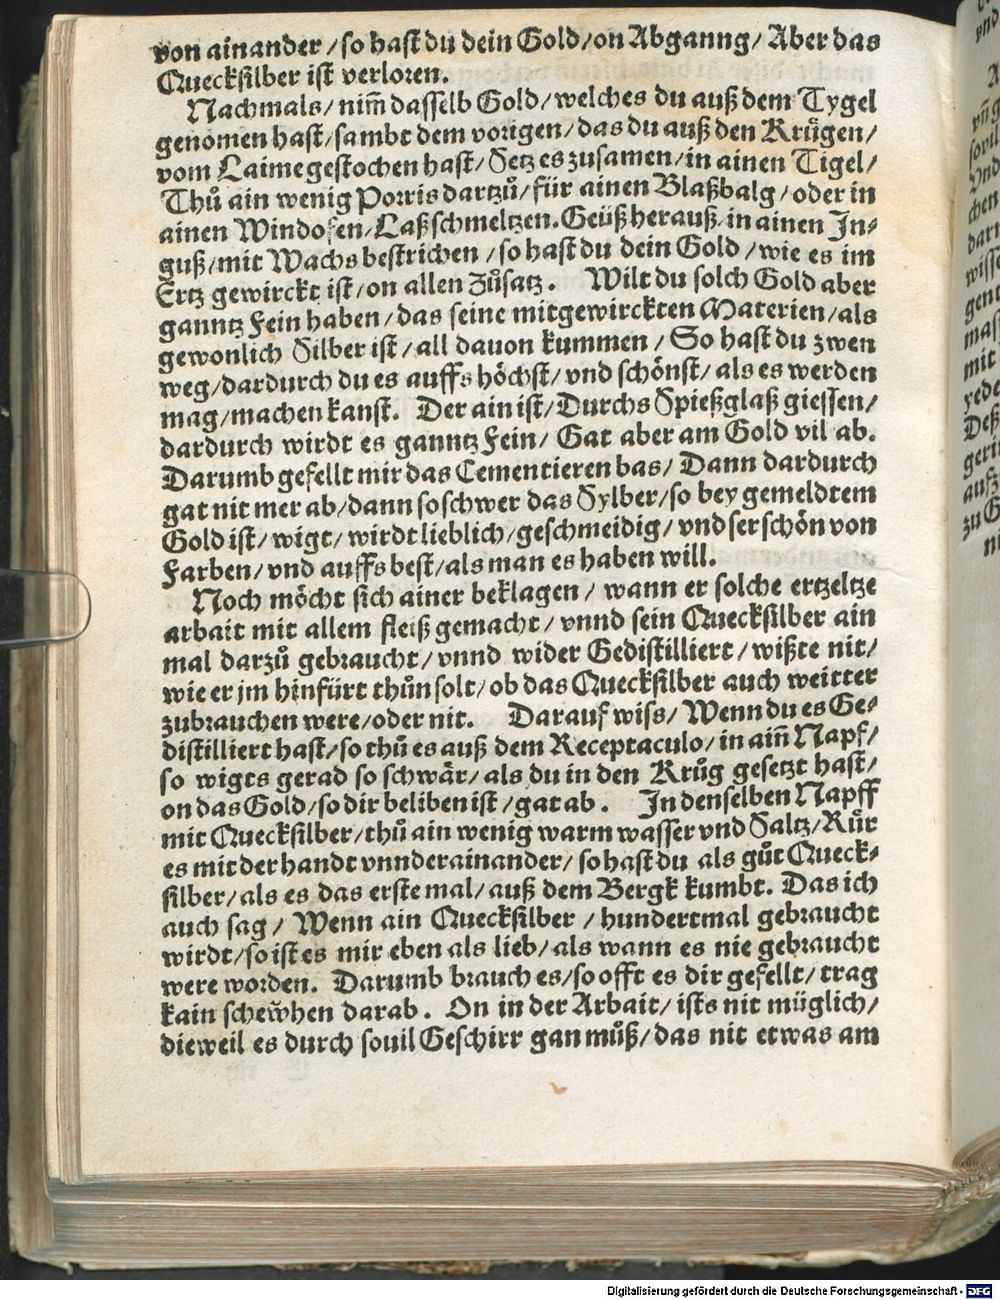 von ainander / so hast du dein Gold / on Abganng / Aber das
Quecksilber ist verloren.
Nachmals / nim̃ dasselb Gold / welches du auß dem Tygel
genomen hast / sambt dem vorigen / das du auß den Krůgen /
vom Laime gestochen hast / Setz es zusamen / in ainen Tigel /
Thů ain wenig Porris dartzů / für ainen Blaßbalg / oder in
ainen Windofen / Laß schmeltzen. Geüß herauß in ainen In⸗
guß / mit Wachs bestrichen / so hast du dein Gold / wie es im
Ertz gewirckt ist / on allen Zůsatz. Wilt du solch Gold aber
ganntz Fein haben / das seine mitgewirckten Materien / als
gewonlich Silber ist / all dauon kummen / So hast du zwen
weg / dardurch du es auffs höchst / vnd schönst / als es werden
mag / machen kanst. Der ain ist / Durchs Spießglaß giessen /
dardurch wirdt es ganntz Fein / Gat aber am Gold vil ab.
Darumb gefellt mir das Cementieren bas / Dann dardurch
gat nit mer ab / dann so schwer das Sylber / so bey gemeldtem
Gold ist / wigt / wirdt lieblich / geschmeidig / vnd ser schön von
Farben / vnd auffs best / als man es haben will.
Noch möcht sich ainer beklagen / wann er solche ertzeltze
arbait mit allem fleiß gemacht / vnnd sein Quecksilber ain
mal darzů gebraucht / vnnd wider Gedistilliert / wißte nit /
wie er jm hinfürt thůn solt / ob das Quecksilber auch weitter
zubrauchen were / oder nit. Darauf wiss / Wenn du es Ge⸗
distilliert hast / so thů es auß dem Receptaculo / in ain̄ Napf /
so wigts gerad so schwär / als du in den Krůg gesetzt hast /
on das Gold / so dir beliben ist / gat ab. In denselben Napff
mit Quecksilber / thů ain wenig warm wasser vnd Saltz / Rür
es mit der handt vnnderainander / so hast du als gůt Queck⸗
silber / als es das erste mal / auß dem Bergk kumbt. Das ich
auch sag / Wenn ain Quecksilber / hundertmal gebraucht
wirdt / so ist es mir eben als lieb / als wann es nie gebraucht
were worden. Darumb brauch es / so offt es dir gefellt / trag
kain scheẅhen darab. On in der Arbait / ists nit müglich /
dieweil es durch souil Geschirr gan můß / das nit etwas am
Digitalisierung gefördert durch die Deutsche Forschungsgemeinschaft - DFG